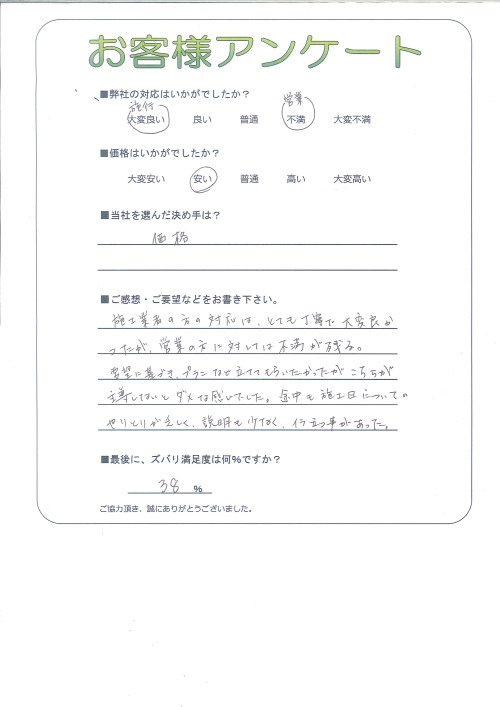 お客様アンケート
■弊社の対応はいかがでしたか？
施行 営業
大変良い 良い 普通 不満 大変不満
■価格はいかがでしたか？
大変安い 安い 普通 高い 大変高い
■当社を選んだ決め手は？
価格
■ご感想・ご要望などをお書き下さい。
施工業者の方の対応は、とても丁寧で大変良か
ったが、営業の方に対しては不満が残る。
要望に基づき、プランなど立ててもらいたかったがこちらが
主導しないとダメな感じでした。途中も施工日についての
やりとりが乏しく、説明も少なく、イラ立つ事があった。
■最後に、ズバリ満足度は何%ですか？
38 %
ご協力頂き、誠にありがとうございました。